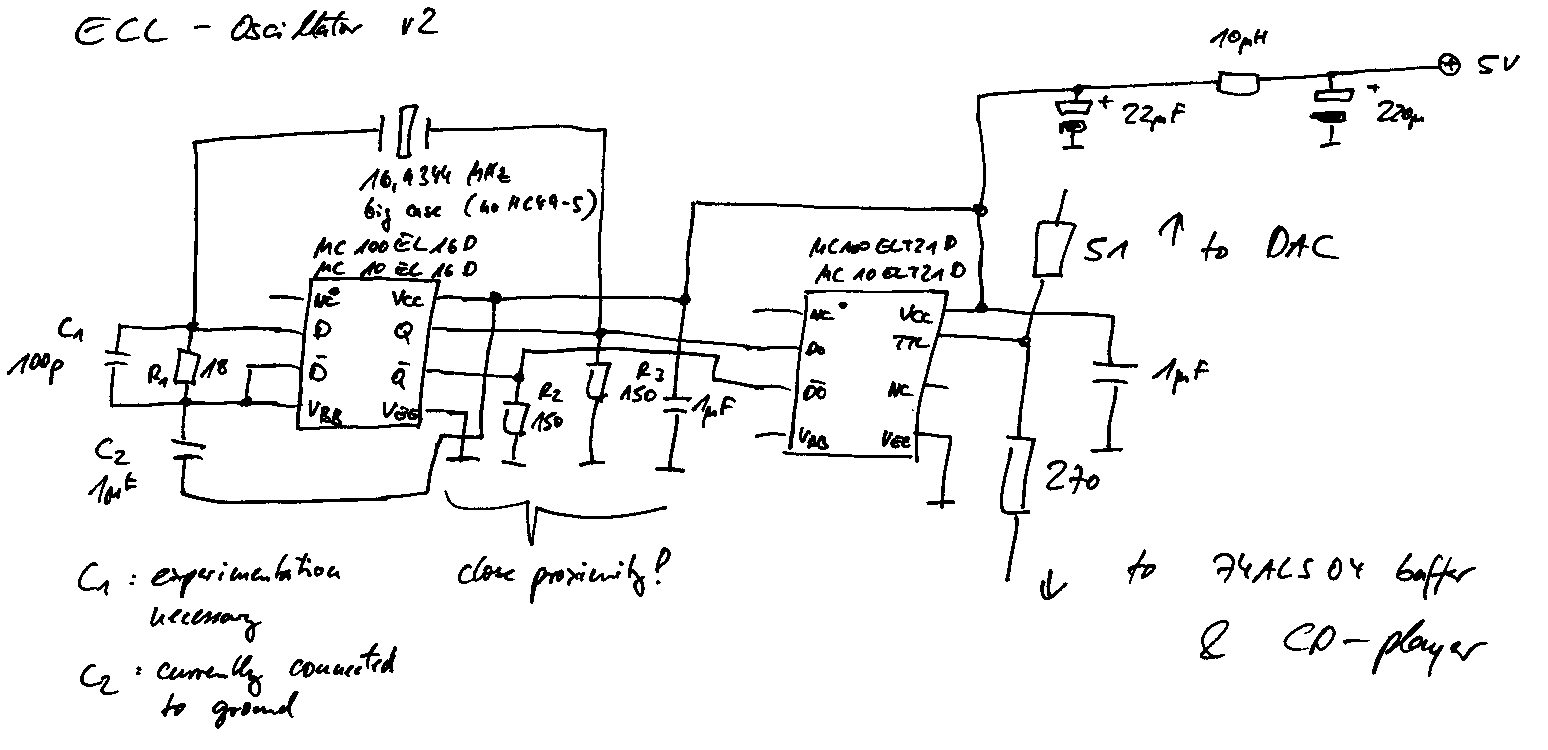 ECL - Oscillator v2
10µH
5V
+ 22µF
+ 220µ
16,9344 MHz
big case (no HC49-S)
MC 100 EL 16 D
MC 10 EL 16 D
MC100 ELT21 D
MC 10 ELT21 D
51 ↑ to DAC
NC VCC
D Q
D̅ Q̅
VBB VEE
NC VCC
D0 TTL
D̅0̅ NC
VBB VEE
C1
100p
R1 18
C2
1µF
R2
150
R3
150
1µF
1µF
270
C1 : experimentation
necessary
close proximity!
↓ to 74ALS04 buffer
& CD-player
C2 : currently connected
to ground